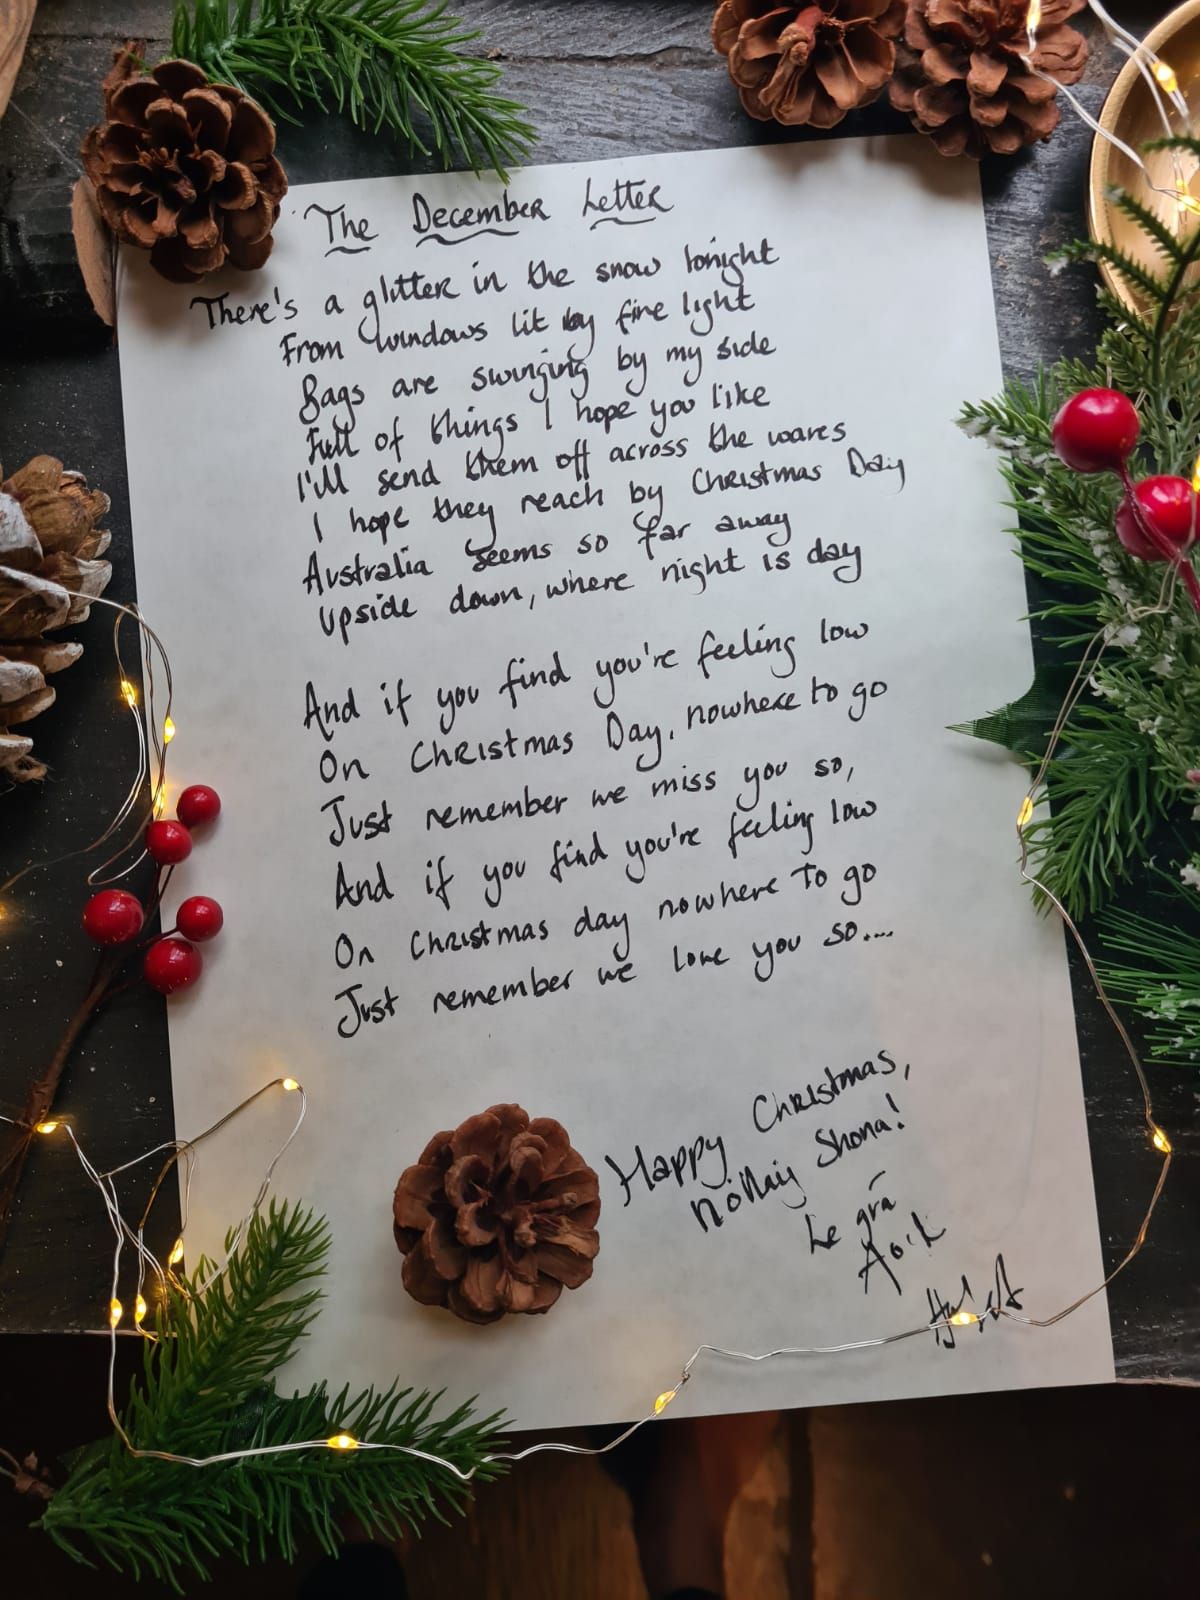 The December Letter
There's a glitter in the snow tonight
From windows lit by fire light
Bags are swinging by my side
Full of things I hope you like
I'll send them off across the waves
I hope they reach by Christmas Day
Australia seems so far away
Upside down, where night is day
And if you find you're feeling low
On Christmas Day, nowhere to go
Just remember we miss you so,
And if you find you're feeling low
On Christmas day nowhere to go
Just remember we love you so....
Happy Christmas,
nollaig Shona!
Le grá